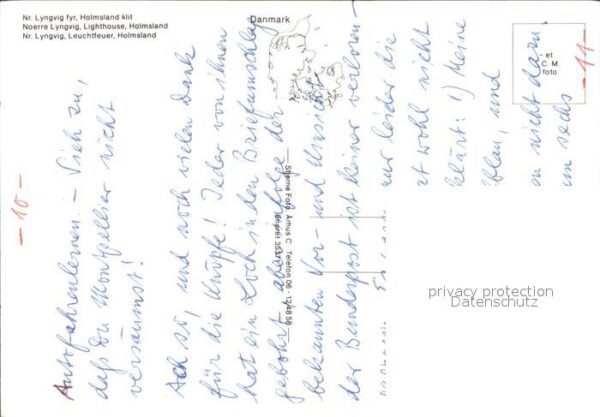 Nr. Lyngvig fyr, Holmsland klit
Noerre Lyngvig, Lighthouse, Holmsland
Nr. Lyngvig, Leuchtfeuer, Holmsland
Danmark
et
C. M.
foto
-10-
Autofahrenlernen. – Sieh zu,
daß Du Montpellier nicht
versäumst!
Ach so, und noch vielen Dank
für die Knöpfe! Jeder von ihnen
hat ein Loch in den Briefumschlag
gebohrt, aber infolge der
bekannten Vor- und Umsicht
der Bundespost ist keiner verloren-
nur leider die
wohl nicht
klärt: 1) Meine
blau, und
nicht dazu
um sechs
-11-
Stjerne Foto Århus C. Telefon 06 - 12 48 58
privacy protection
Datenschutz